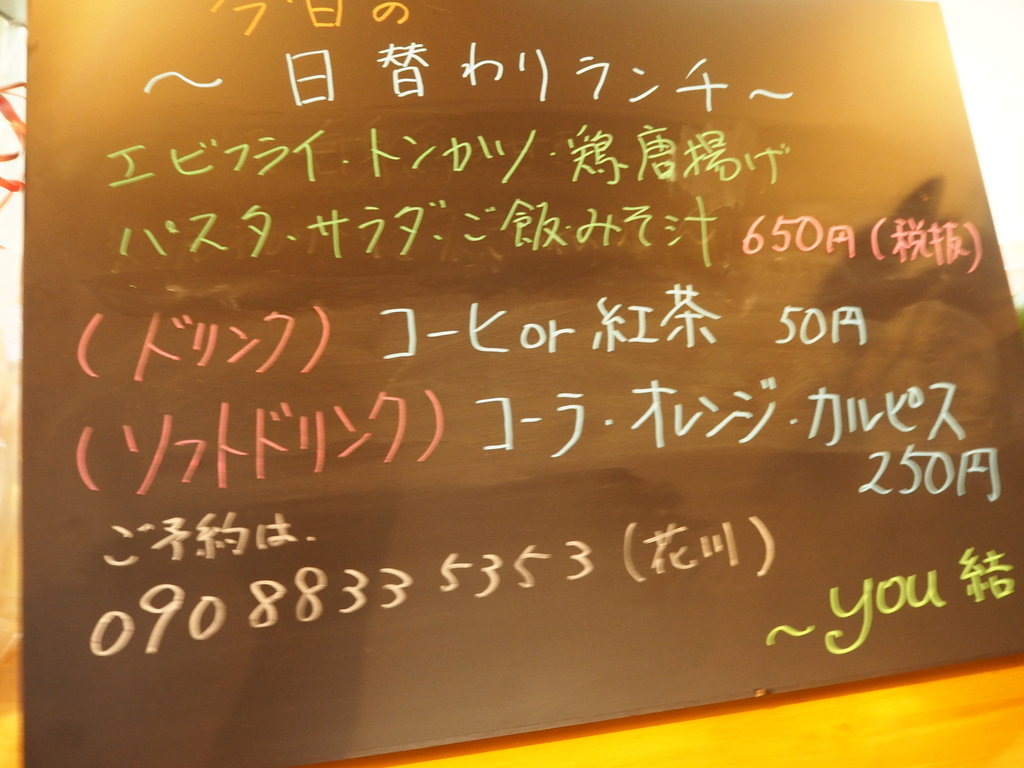 今日の
～日替わりランチ～
エビフライ・トンカツ・鶏唐揚げ
パスタ・サラダ・ご飯・みそ汁 650円(税抜)
(ドリンク) コーヒor紅茶 50円
(ソフトドリンク) コーラ・オレンジ・カルピス
250円
ご予約は.
090 8833 5353 (花川)
～you結